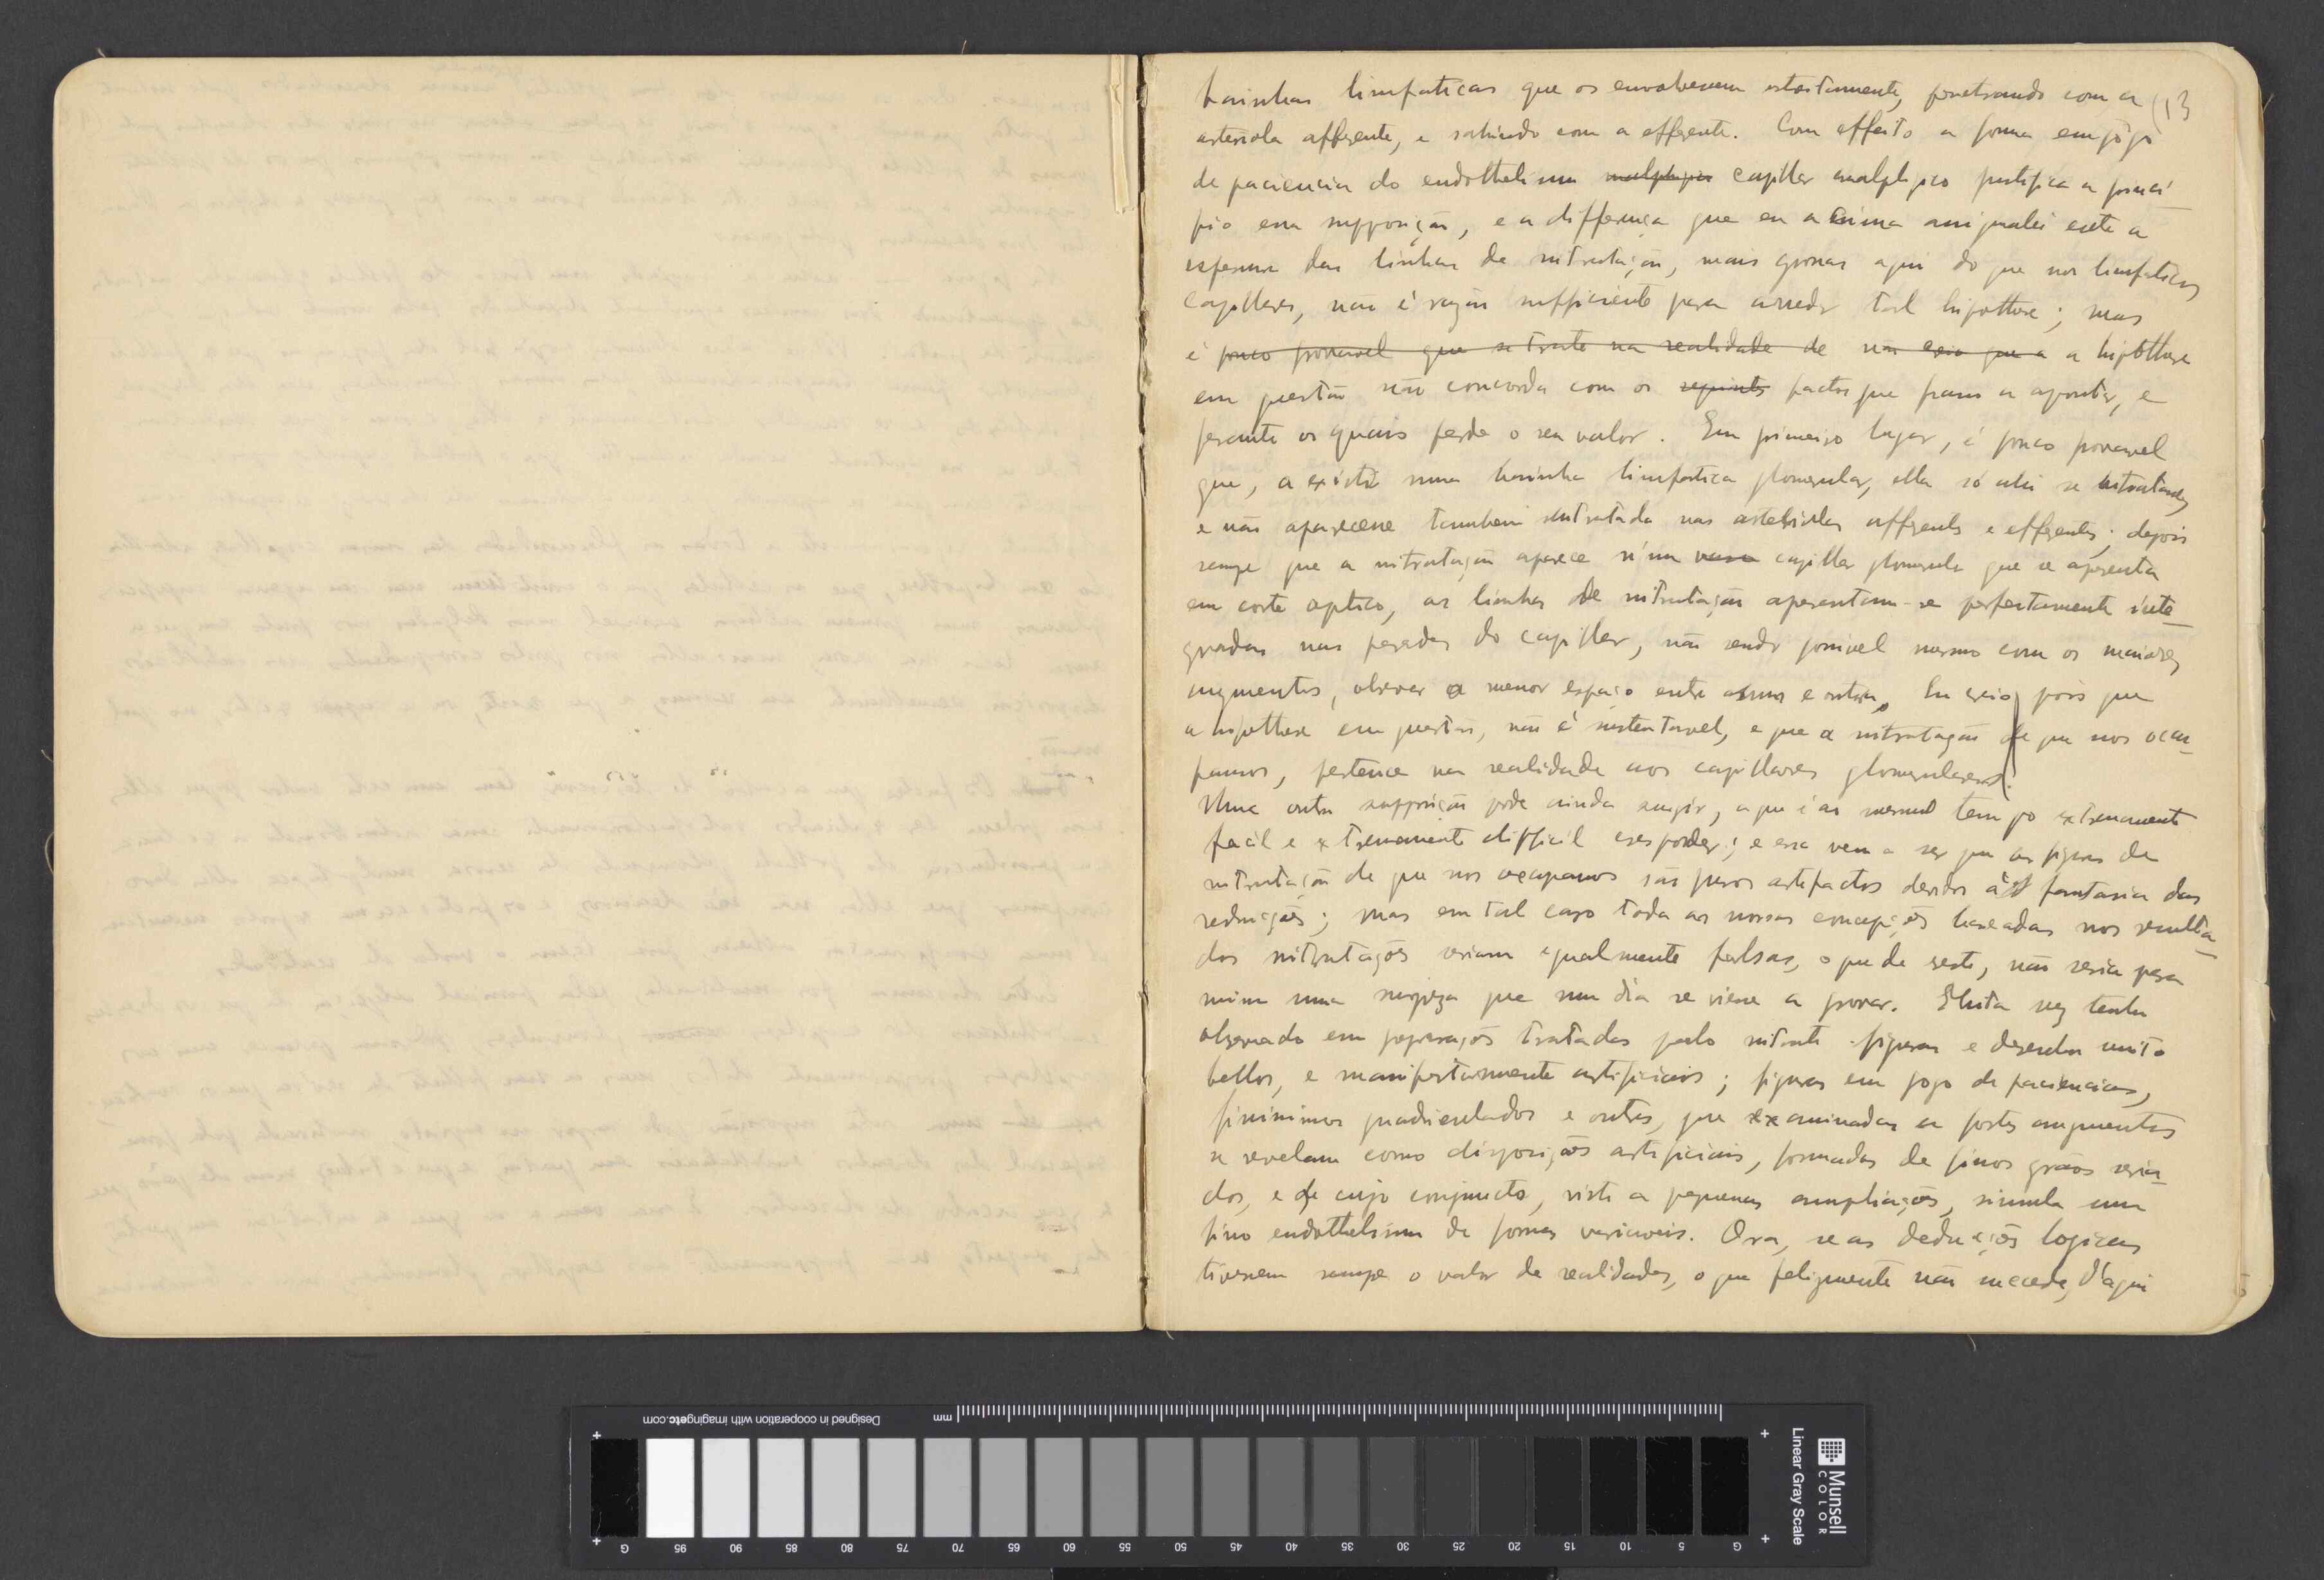 bainhas limfaticas que os envolvessem estreitamente, penetrando com a (13
arteriola afferente, e sahindo com a efferente. Com effeito a forma em jogo
de paciencia do endothelium malphigia capillar malphigico justifica a princi
pio essa supposição, e a differença que eu acima assignalei ácêrca
espessura das linhas de nitratação, mais grossas aqui do que nos limfaticos
capillares, não é razão sufficiente para arredar tal hipothese; mas
é pouco provavel que se trate na realidade de não creio que a a hipothese
em questão não concorda com os seguintes factos que passo a apontar, e
perante os quais perde o seu valor. Em primeiro lugar, é pouco provavel
que, a existir uma bainha limfatica glomerular, ella só ahi se nitratasse,
e não aparecesse tambem nitratada nas arteriolas afferente e efferente; depois
sempre que a nitratação aparece n'um vaso capillar glomerular que se apresenta
em corte optico, as linhas de nitratação apresentam-se perfeitamente inte
gradas nas paredes do capillar, não sendo possivel mesmo com os maiores
augmentos, observar o menor espaço entre umas e outra. Eu creio pois que
a hipothese em questão, não é sustentavel, e que a nitratação de que nos ocu
pamos, pertence na realidade aos capillares glomerulares.
Uma outra supposição pode ainda surgir, a que é ao mesmo tempo extremamente
facil e extremamente difficil responder; e essa vem a ser que as figuras de
nitratação de que nos occupamos são puros artefactos devidos á fantasia das
reducções; mas em tal caso toda as nossas concepções baseadas nos resulta
dos nitratações seriam egualmente falsas, o que de resto, não seria para
mim uma surpreza que um dia se viesse a provar. Muita vez tenho
observado em preparações tratadas pelo nitrato figuras e desenhos muito
bellos, e manifestamente artificiais; figuras em jogo de paciencias,
finissimos quadriculados e outras, que examinadas a fortes augmentos
se revelam como disposições artificiais, formadas de finos grãos seria
dos, e de cujo conjuncto, visto a pequenas ampliações, simula um
fino endothelium de formas variaveis. Ora, se as deducções logicas
tivessem sempre o valor de realidades, o que felizmente não succede, d'aqui
Designed in cooperation with imagingetc.com
mm
Munsell
COLOR
Linear Gray Scale
G 95 90 85 80 75 70 65 60 55 50 45 40 35 30 25 20 15 10 5 G